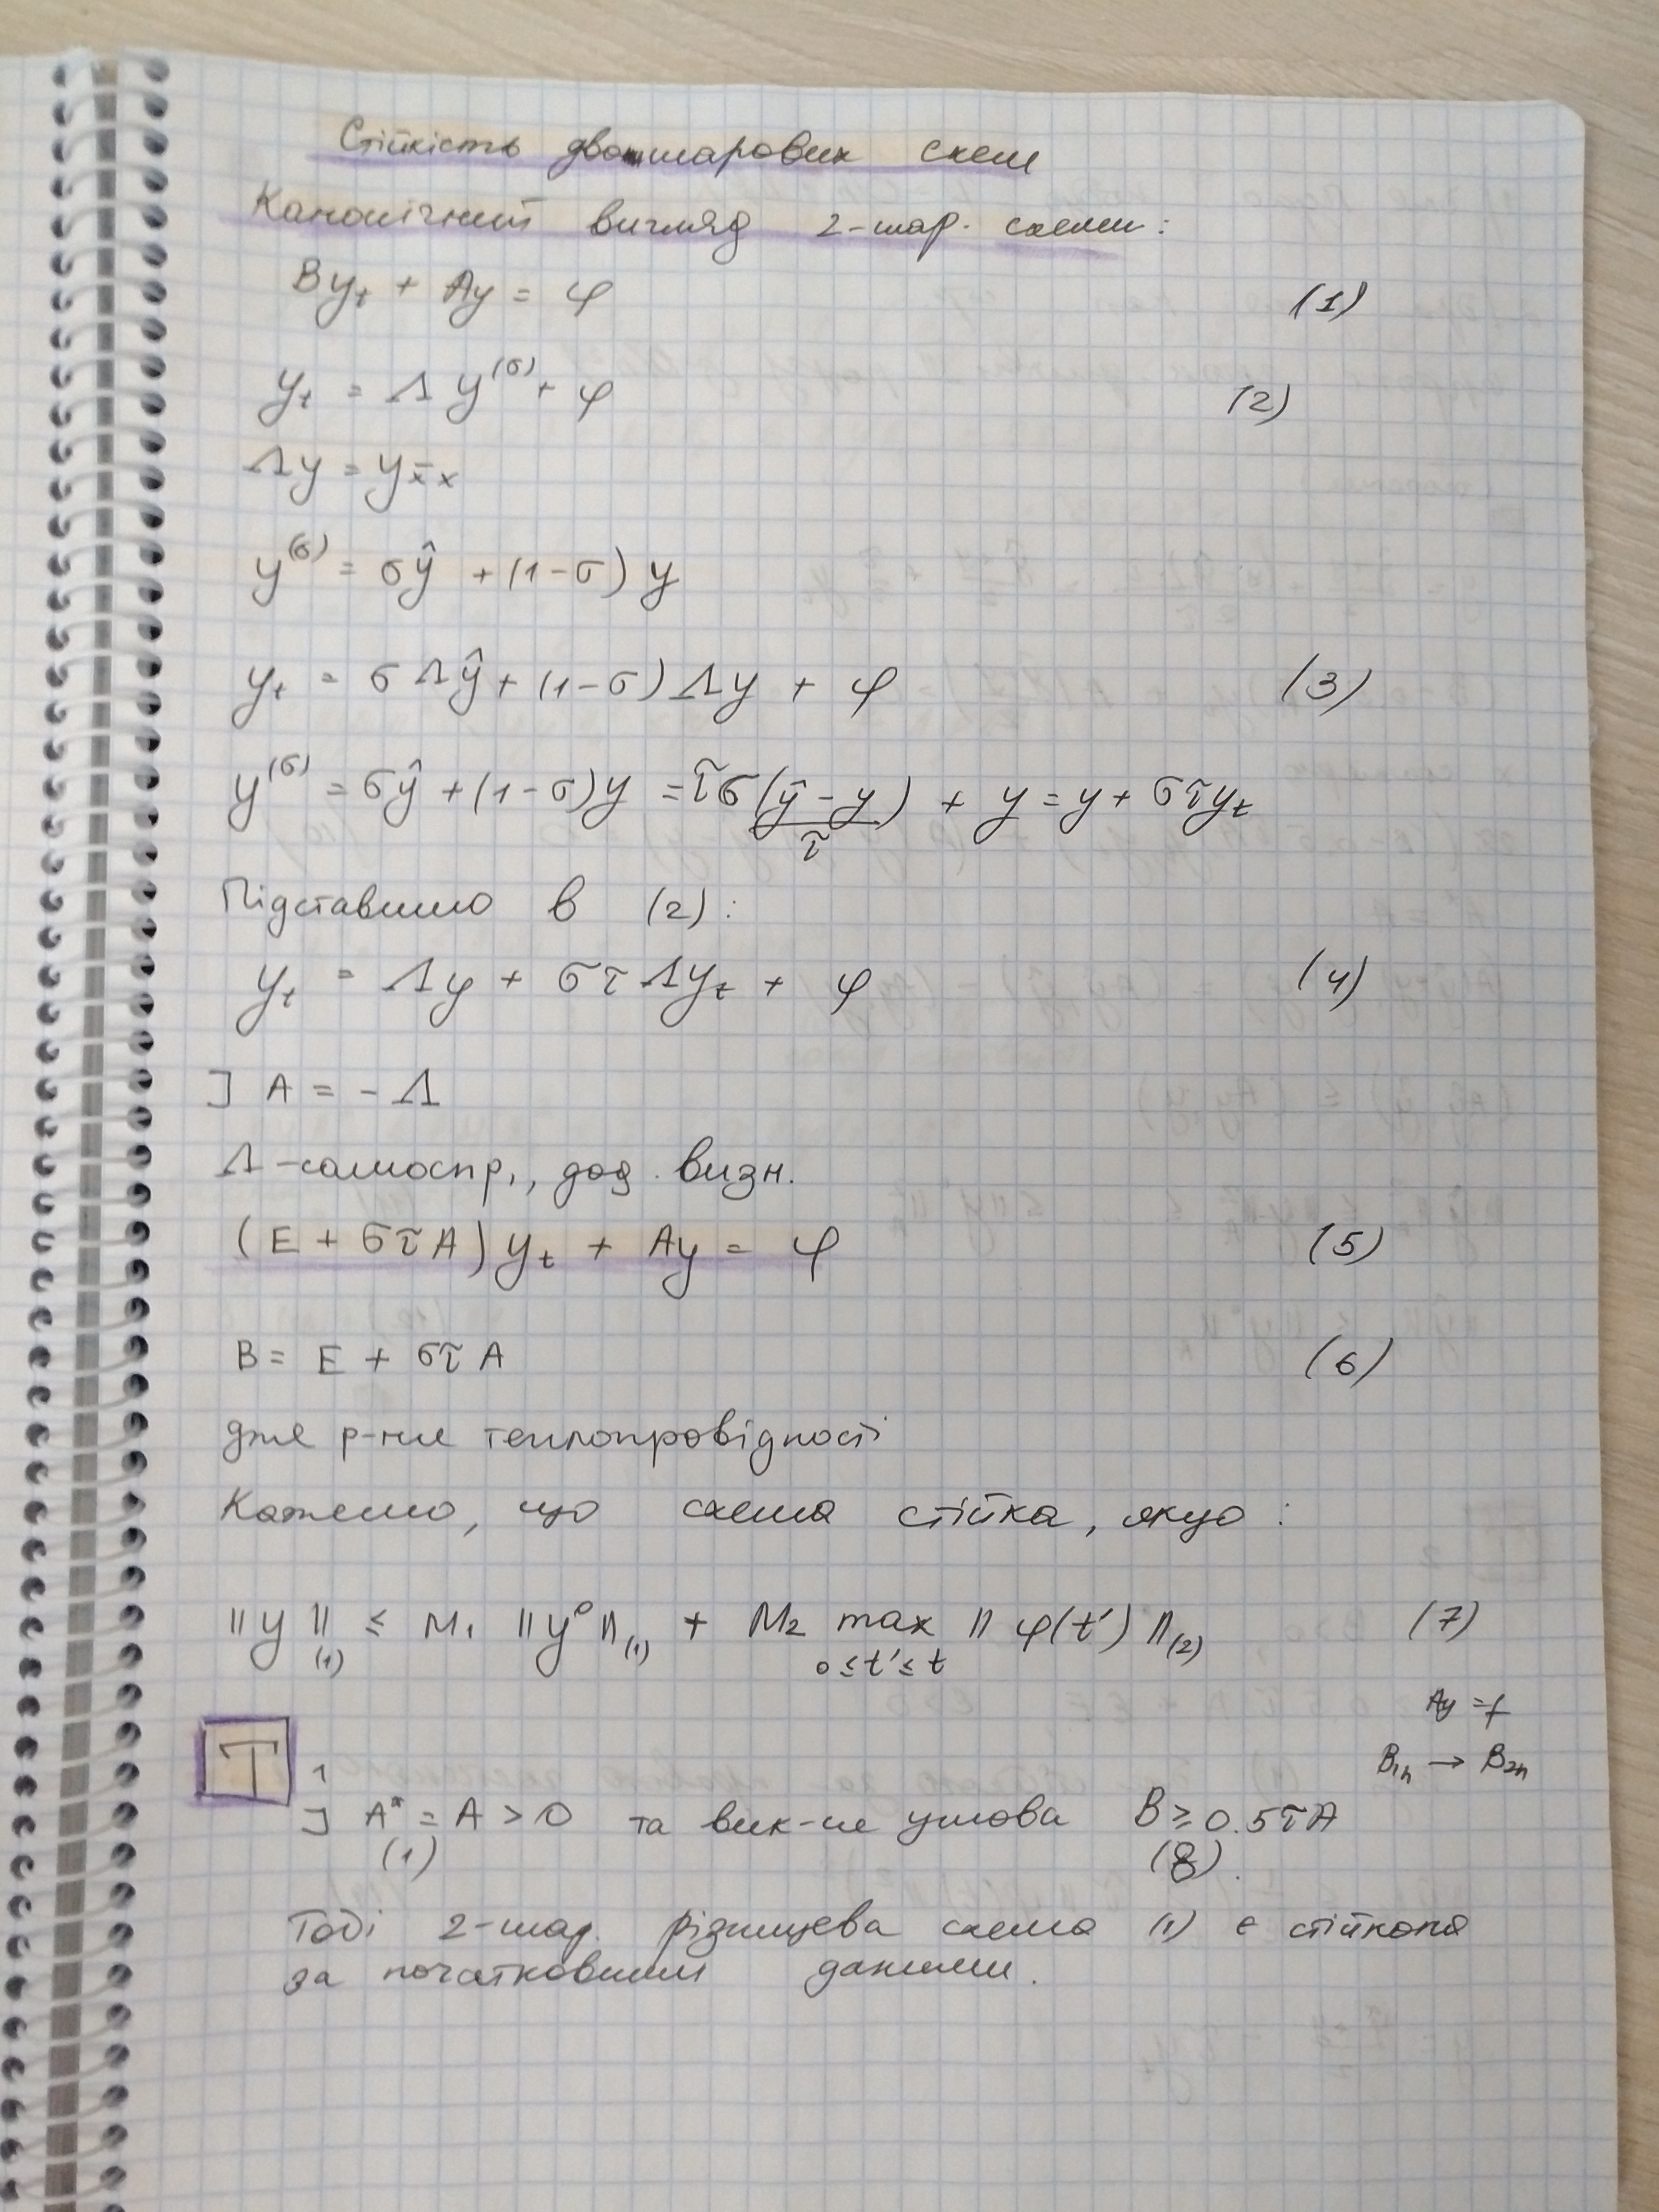 Стійкість двошарових схем
Канонічний вигляд 2-шар. схеми:
By_t + Ay = φ (1)
y_t = Λy^(σ) + φ (2)
Λy = y_x̄x
y^(σ) = σŷ + (1-σ)y
y_t = σΛŷ + (1-σ)Λy + φ (3)
y^(σ) = σŷ + (1-σ)y = τσ(ŷ-y)/τ + y = y + στy_t
Підставимо в (2):
y_t = Λy + στΛy_t + φ (4)
] A = -Λ
Λ-самоспр., дод. визн.
(E + στA)y_t + Ay = φ (5)
B = E + στA (6)
для р-ня теплопровідності
Кажемо, що схема стійка, якщо:
||y||_(1) ≤ M₁ ||y⁰||_(1) + M₂ max ||φ(t')||_(2) (7)
0≤t'≤t
Ay = f
B_1n → B_2n
T 1
] A* = A > 0 та вик-ся умова B ≥ 0.5τA
(1) (8).
Тоді 2-шар. різницева схема (1) є стійкою
за початковими даними.